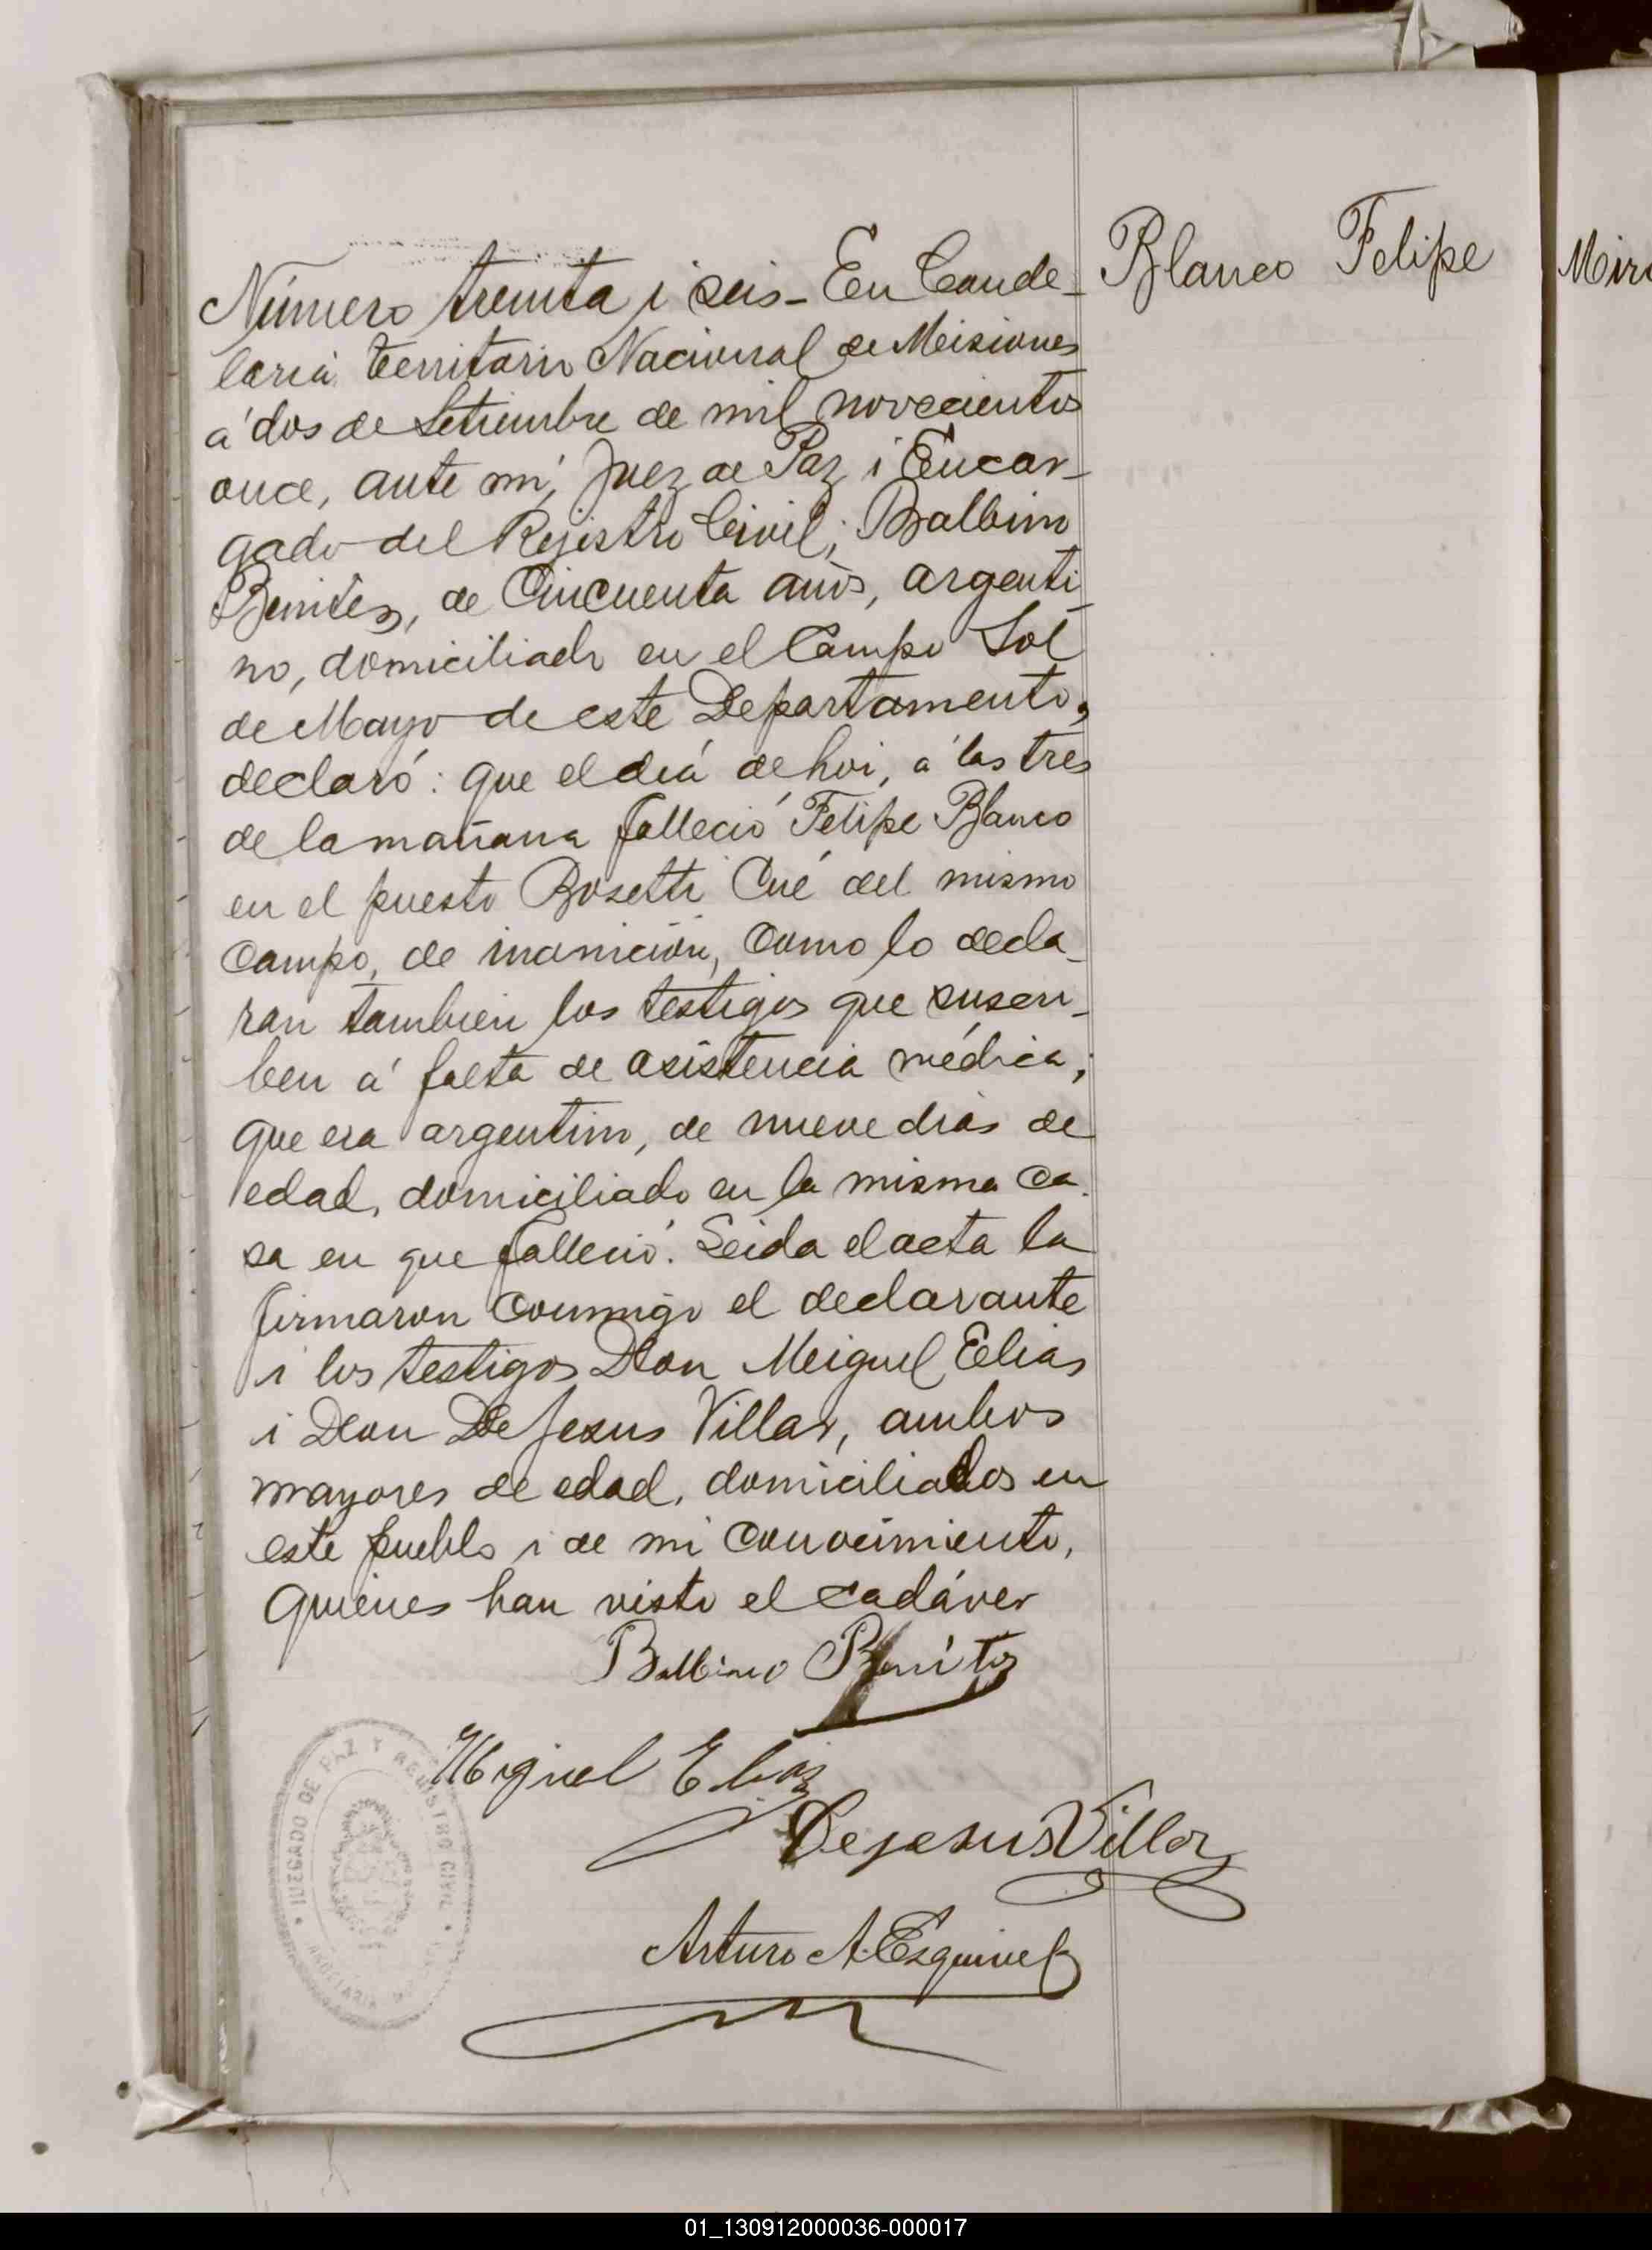 Blanco Felipe
Número treinta i seis - En Cande-
laria territorio Nacional de Misiones
á dos de Setiembre de mil novecientos
once, ante mí, Juez de Paz i Encar-
gado del Rejistro Civil; Balbino
Benites, de Cincuenta años, argenti-
no, domiciliado en el Campo Sol
de Mayo de este Departamento,
declaró: que el diá de hoi, á las tres
de la mañana falleció Felipe Blanco
en el puesto Bosetti Cué del mismo
Campo, de inanición, como lo decla-
ran tambien los testigos que suscri-
ben á falta de asistencia médica;
que era argentino, de nueve dias de
edad, domiciliado en la misma ca-
sa en que falleció. Leida el acta la
firmaron conmigo el declarante
i los testigos Don Miguel Elias
i Don De Jesus Villar, ambos
mayores de edad, domiciliados en
este pueblo i de mi conocimiento,
quienes han visto el cadáver
Balbino Benítez
Miguel Elias
Dejesus Villar
Arturo A. Esquivel
JUZGADO DE PAZ Y REGISTRO CIVIL
01_130912000036-000017